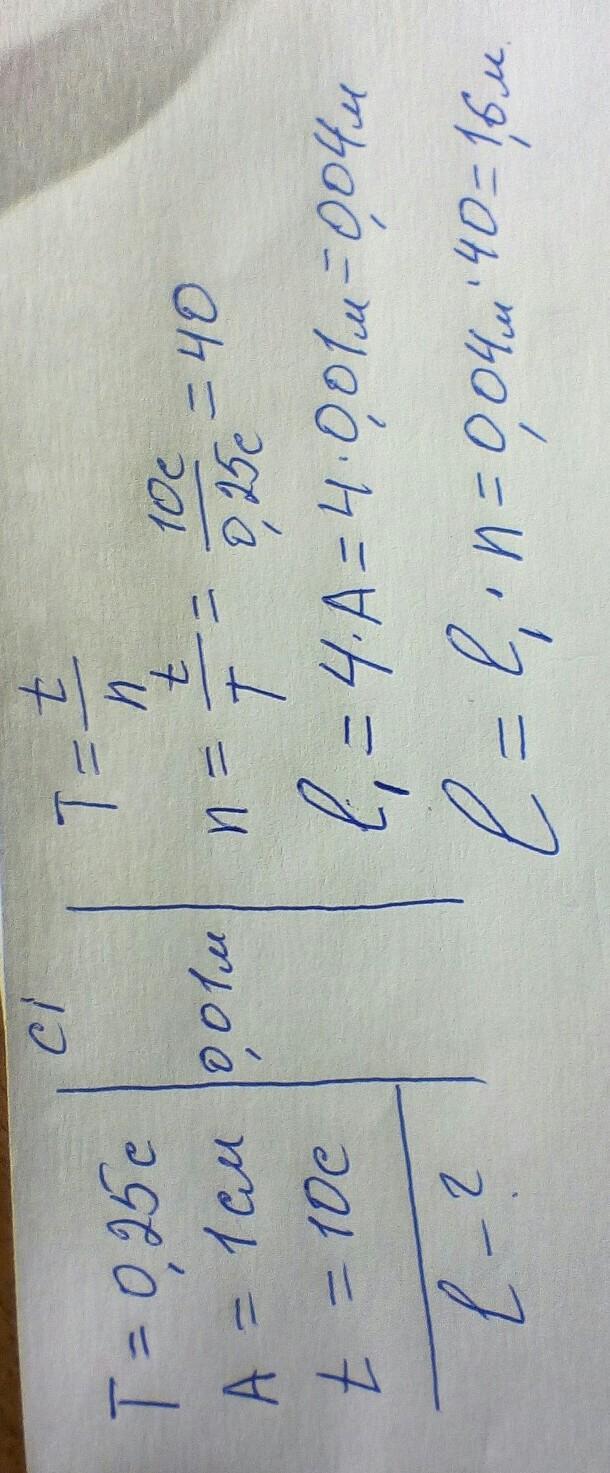 T = 0,25с
A = 1см
t = 10с
l - ?
сі
0,01м
T = t/n
n = t/T = 10с/0,25с = 40
l₁ = 4·A = 4·0,01м = 0,04м
l = l₁·n = 0,04м·40 = 1,6м.